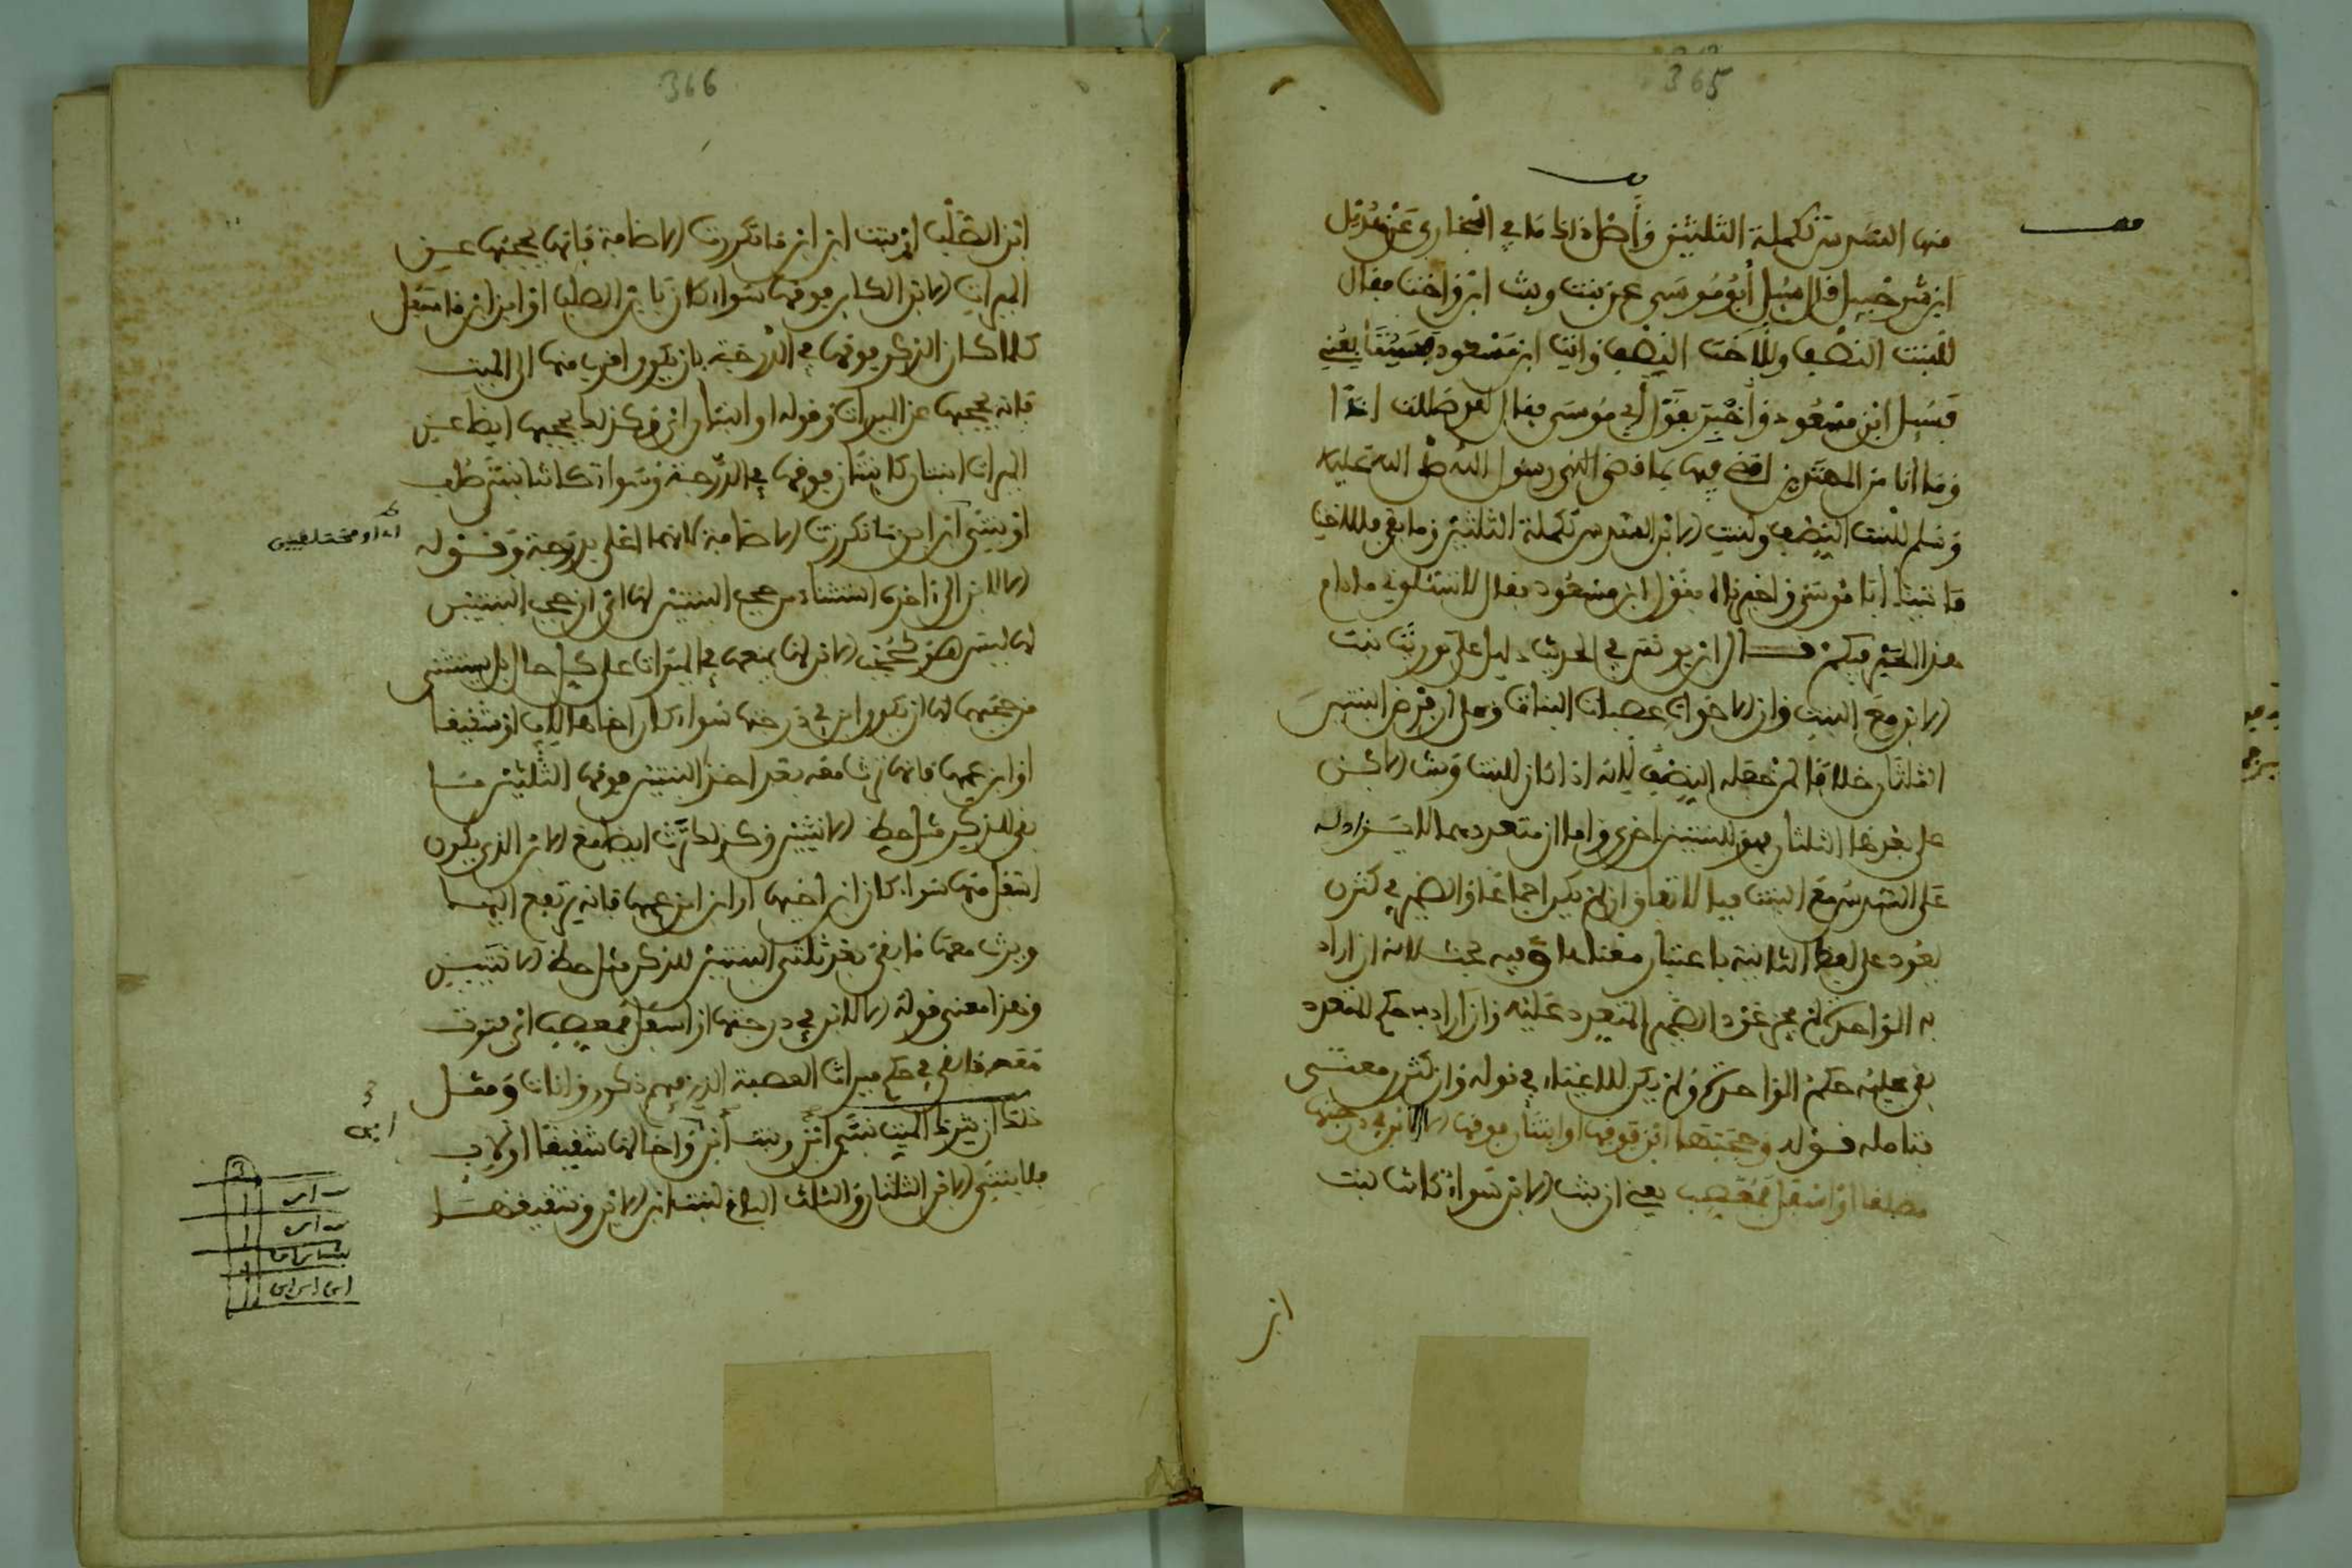 365
منها السدس تكملة الثلثين وأصل ذلك ما في البخاري عن هزيل
ابن شرحبيل قال سئل أبو موسى عن بنت وبنت ابن وأخت فقال
للبنت النصف وللأخت النصف وايت ابن مسعود يعني
فسئل ابن مسعود وأخبر بقول أبي موسى فقال لقد ضللت إذا
وما أنا من المهتدين أقضي فيها بما قضى رسول الله صلى الله عليه
وسلم للبنت النصف ولبنت الابن السدس تكملة الثلثين وما بقي فللأخت
فأتينا أبا موسى وأخبرناه بقول ابن مسعود فقال لا تسئلوني ما دام
هذا الحبر فيكم قال ابن يونس في الحديث دليل على توريث بنت
الابن مع البنت وان الاخوات عصبات البنات وعلى ان فرض البنتين
الثلثان خلافا لمن جعله النصف لأنه اذا كان للبنت وبنت الابن
على بعدها الثلثان فهو للبنتين احرى واما ان متعددهما لا يزاد له
على السدس مع البنت
يعود على لفظ الثانية باعتبار معناها وفيه بحث لأنه ان أراد
به الواحدة لم يجز عود الضمير المتعدد عليه وان أراد به حكم المتعدد
بقي عليه حكم الواحدة ولم يكن للاعتناء في قوله وان كثرن معنى
فتأمله قوله وحجبتها ابن فوقها أو ابنتان فوقها الا الابن في درجتها
مطلقا أو أسفل فمعصب يعني ان بنت الابن سواء كانت بنت
ابن
366
ابن الصلب أو بنت ابن ابن ما تكررت الاضافة فانها يحجبها عن
الميراث الابن الكاين فوقها سواء كان ابن الصلب أو ابن ابن ما سفل
كلما كان الذكر فوقها في الدرجة بان يكون اقرب منها الى الميت
فانه يحجبها عن الميراث وقوله او ابنتان اي وكذلك يحجبها ايضا عن
الميراث ابنتان كاينتان فوقها في الدرجة وسواء كانتا بنتي صلب
او بنتي ابن ما تكررت الاضافة لانهما اعلى بدرجة وقوله
او مختلفين
الا الابن الى اخره استثناء من حجب البنتين لها اي ان حجب البنتين
لها ليس هو كحجب الابن لها يمنعها في الميراث على كل حال بل يستثنى
من حجبهما لها ان يكون ابن في درجتها سواء كان اخاها لاب او شقيقا
او ابن عمها فانها ترث معه بعد اخذ البنتين فوقها الثلثين ما
بقي للذكر مثل حظ الانثيين وكذلك ترث ايضا مع الابن الذي يكون
اسفل منها سواء كان ابن اخيها او ابن ابن عمها فانه يرتفع اليها
ويرث معها ما بقي بعد ثلثي البنتين للذكر مثل حظ الانثيين
وهذا معنى قوله الا الابن في درجتها أو اسفل فمعصب اي فترث
معه ما بقي في حكم ميراث العصبة الذين فيهم ذكور واناث ومثل
ذلك ان يترك الميت بنتي ابن وبنت ابن ابن واخا لها شقيقا أو لاب
فلبنتي الابن الثلثان والثلث الباقي لبنت ابن الابن وشقيقها